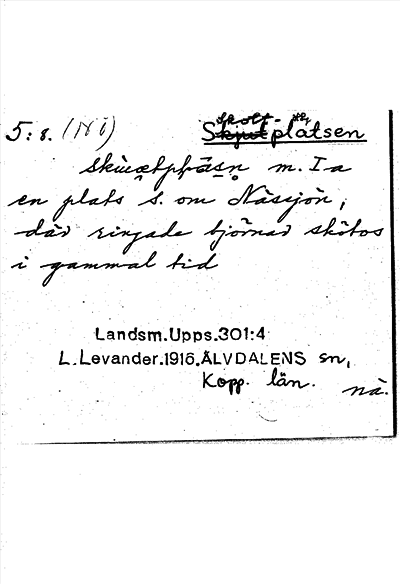 5:8. (N 6) Skott-platsen
m. I a
en plats s. om Nässjön,
där ringade björnar skötos
i gammal tid
Landsm.Upps.301:4
L.Levander.1916.ÄLVDALENS sn,
Kopp. län.
nä.